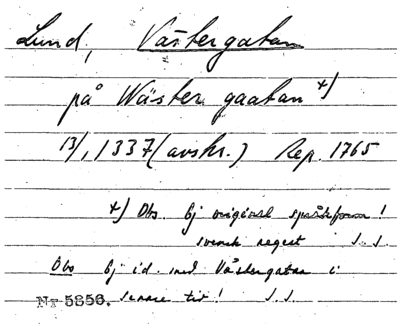 Lund, Västergatan
på Wäster gaatan *)
13/1 1337 (avskr.) Rep. 1765
*) Obs. Ej original språkform!
svensk regest J.S.
Obs Ej id. med Västergatan i
Nr 5856. senare tid! J.S.